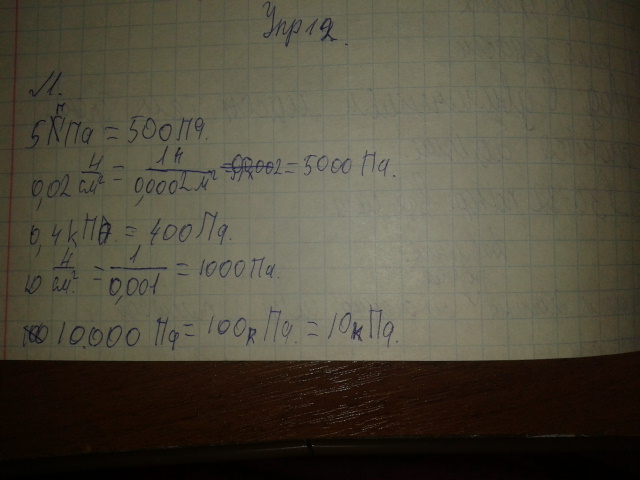 Упр 12.
№1.
5гПа = 500 Па.
0,02 Н/см² = 1 Н/0,0002 м² = 5000 Па.
0,4 кПа = 400 Па.
10 Н/см² = 1/0,001 = 1000 Па.
10.000 Па = 100г Па = 10кПа.